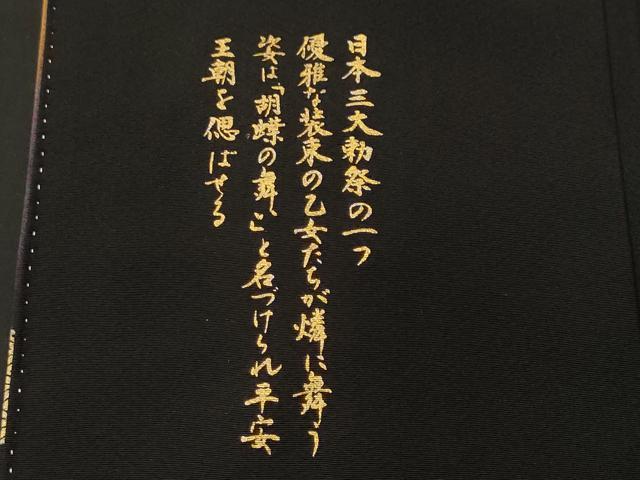 日本三大勅祭の一つ
優雅な装束の乙女たちが燐に舞う
姿は「胡蝶の舞」と名づけられ平安
王朝を偲ばせる